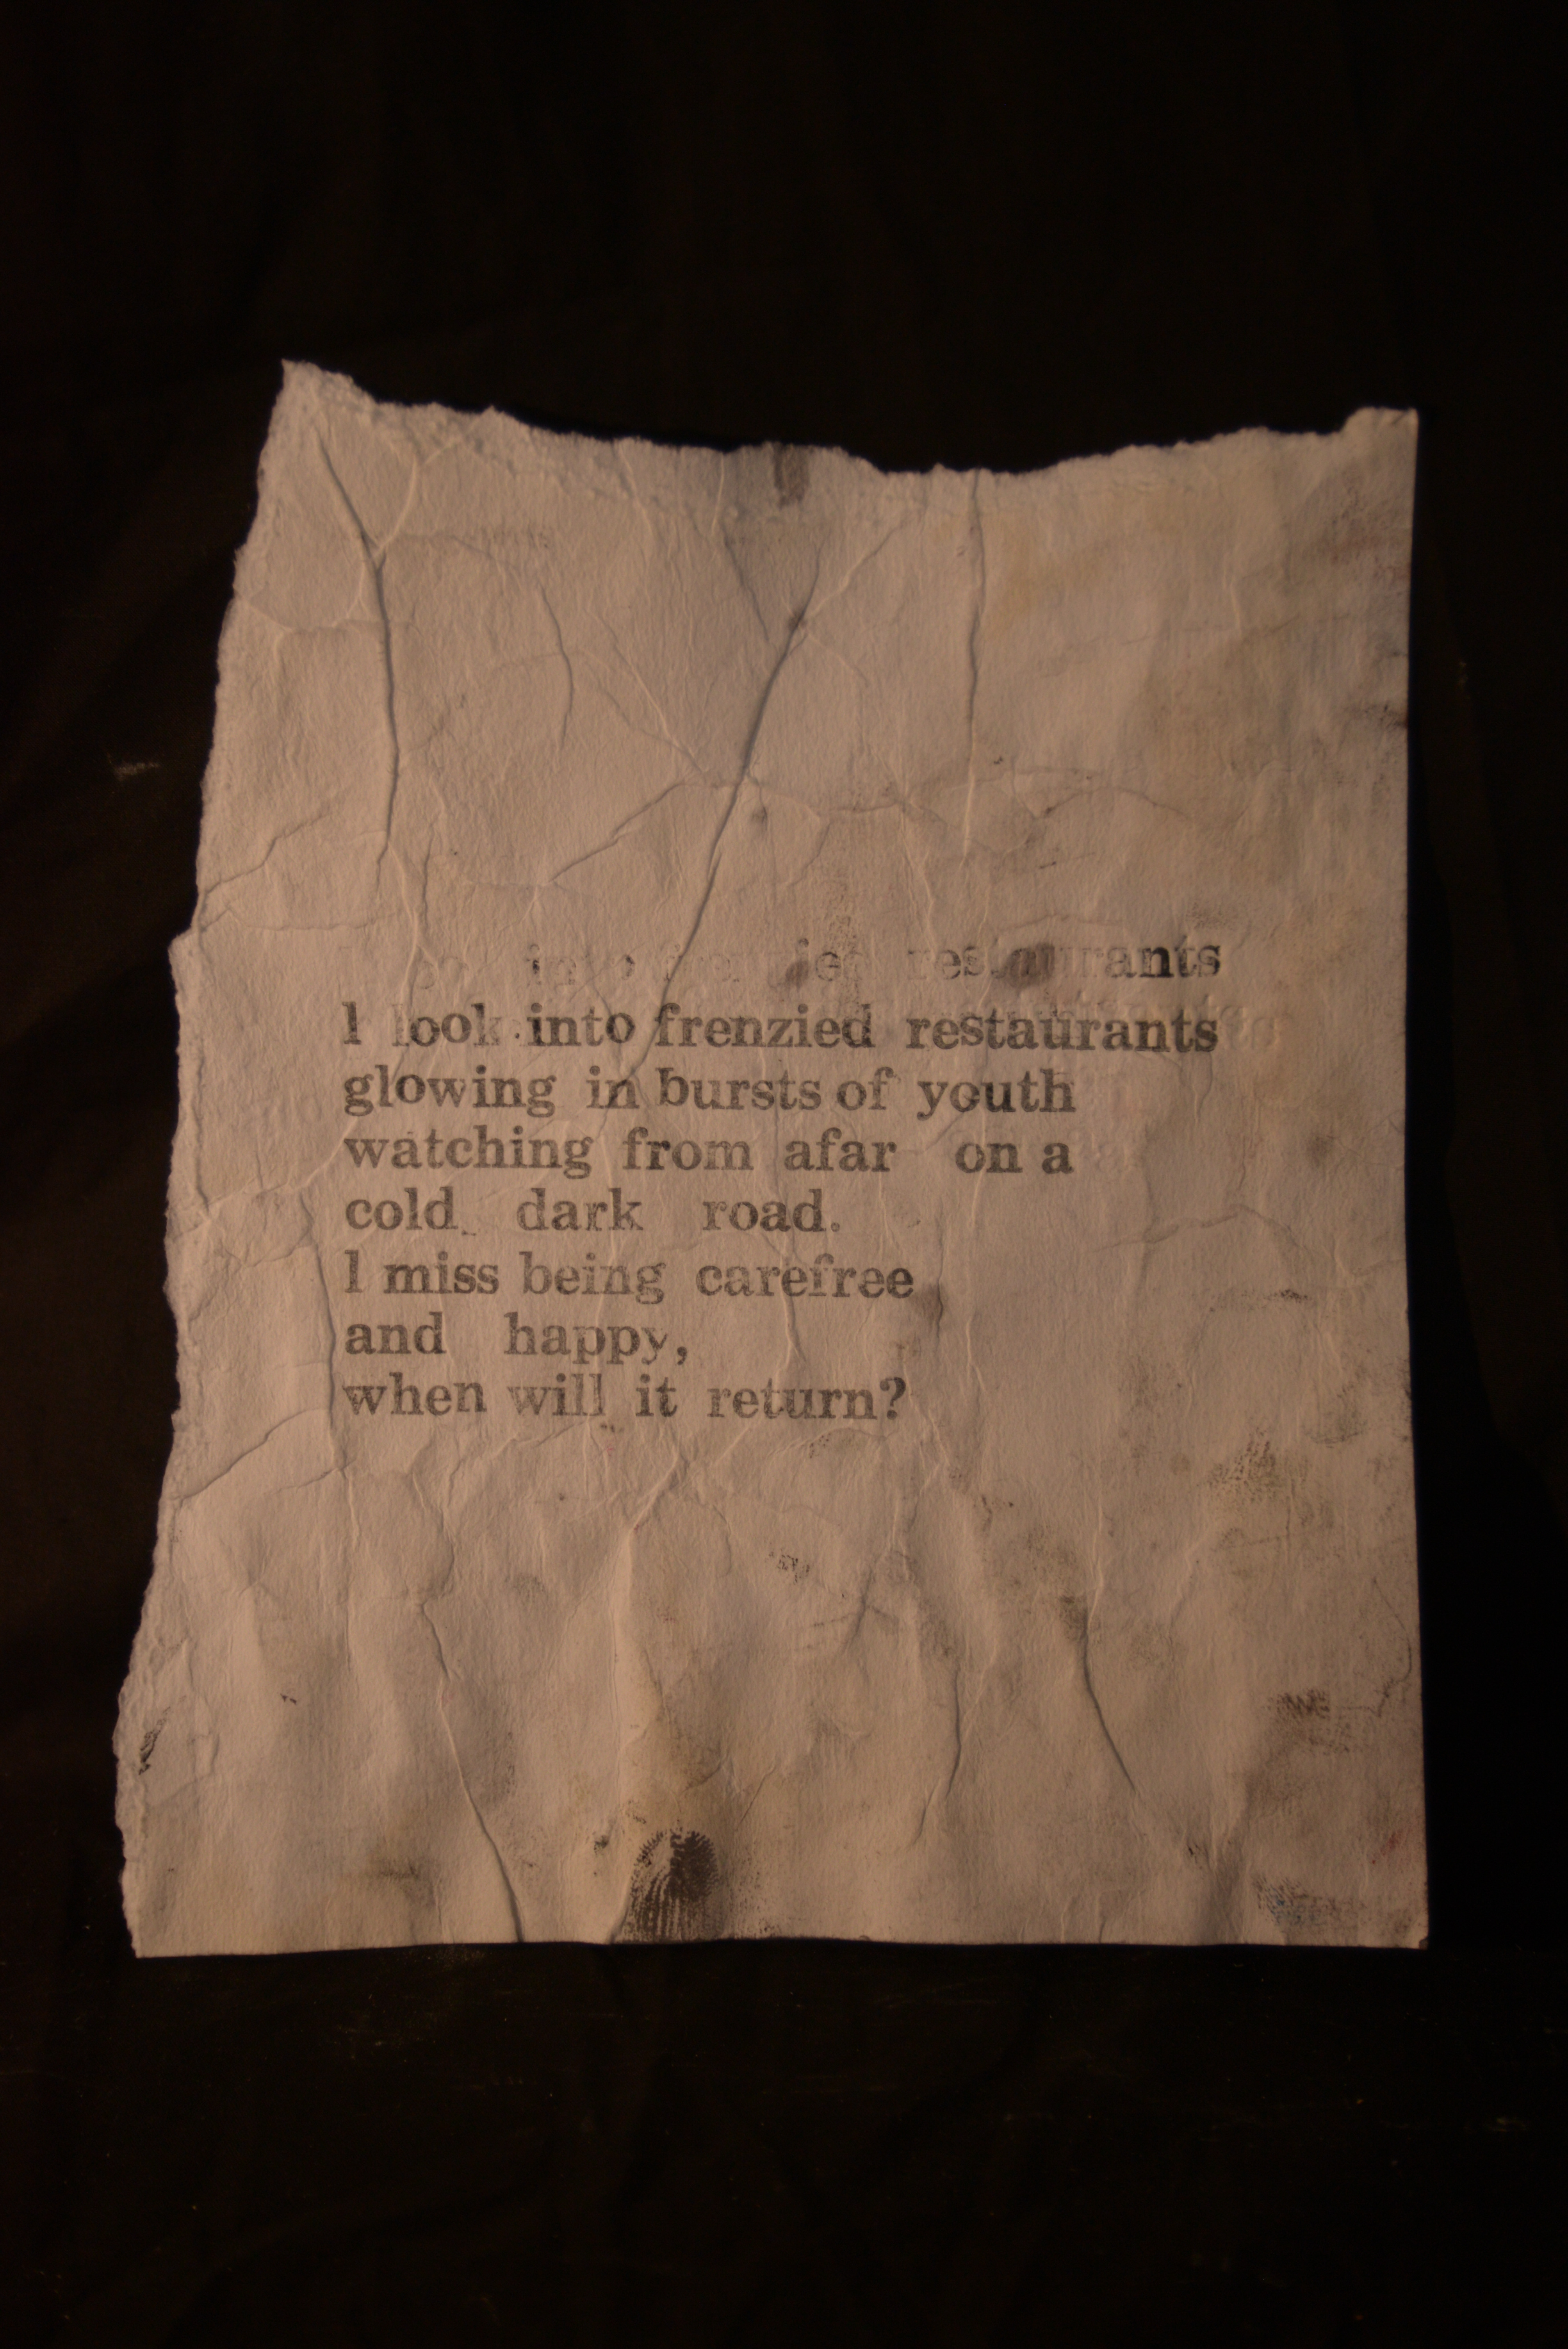 into frenzied restaurants
I look into frenzied restaurants
glowing in bursts of youth
watching from afar on a
cold dark road.
I miss being carefree
and happy,
when will it return?